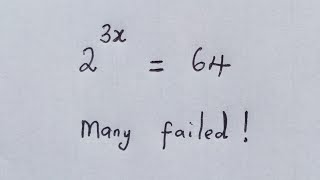 2^{3x} = 64
Many failed!